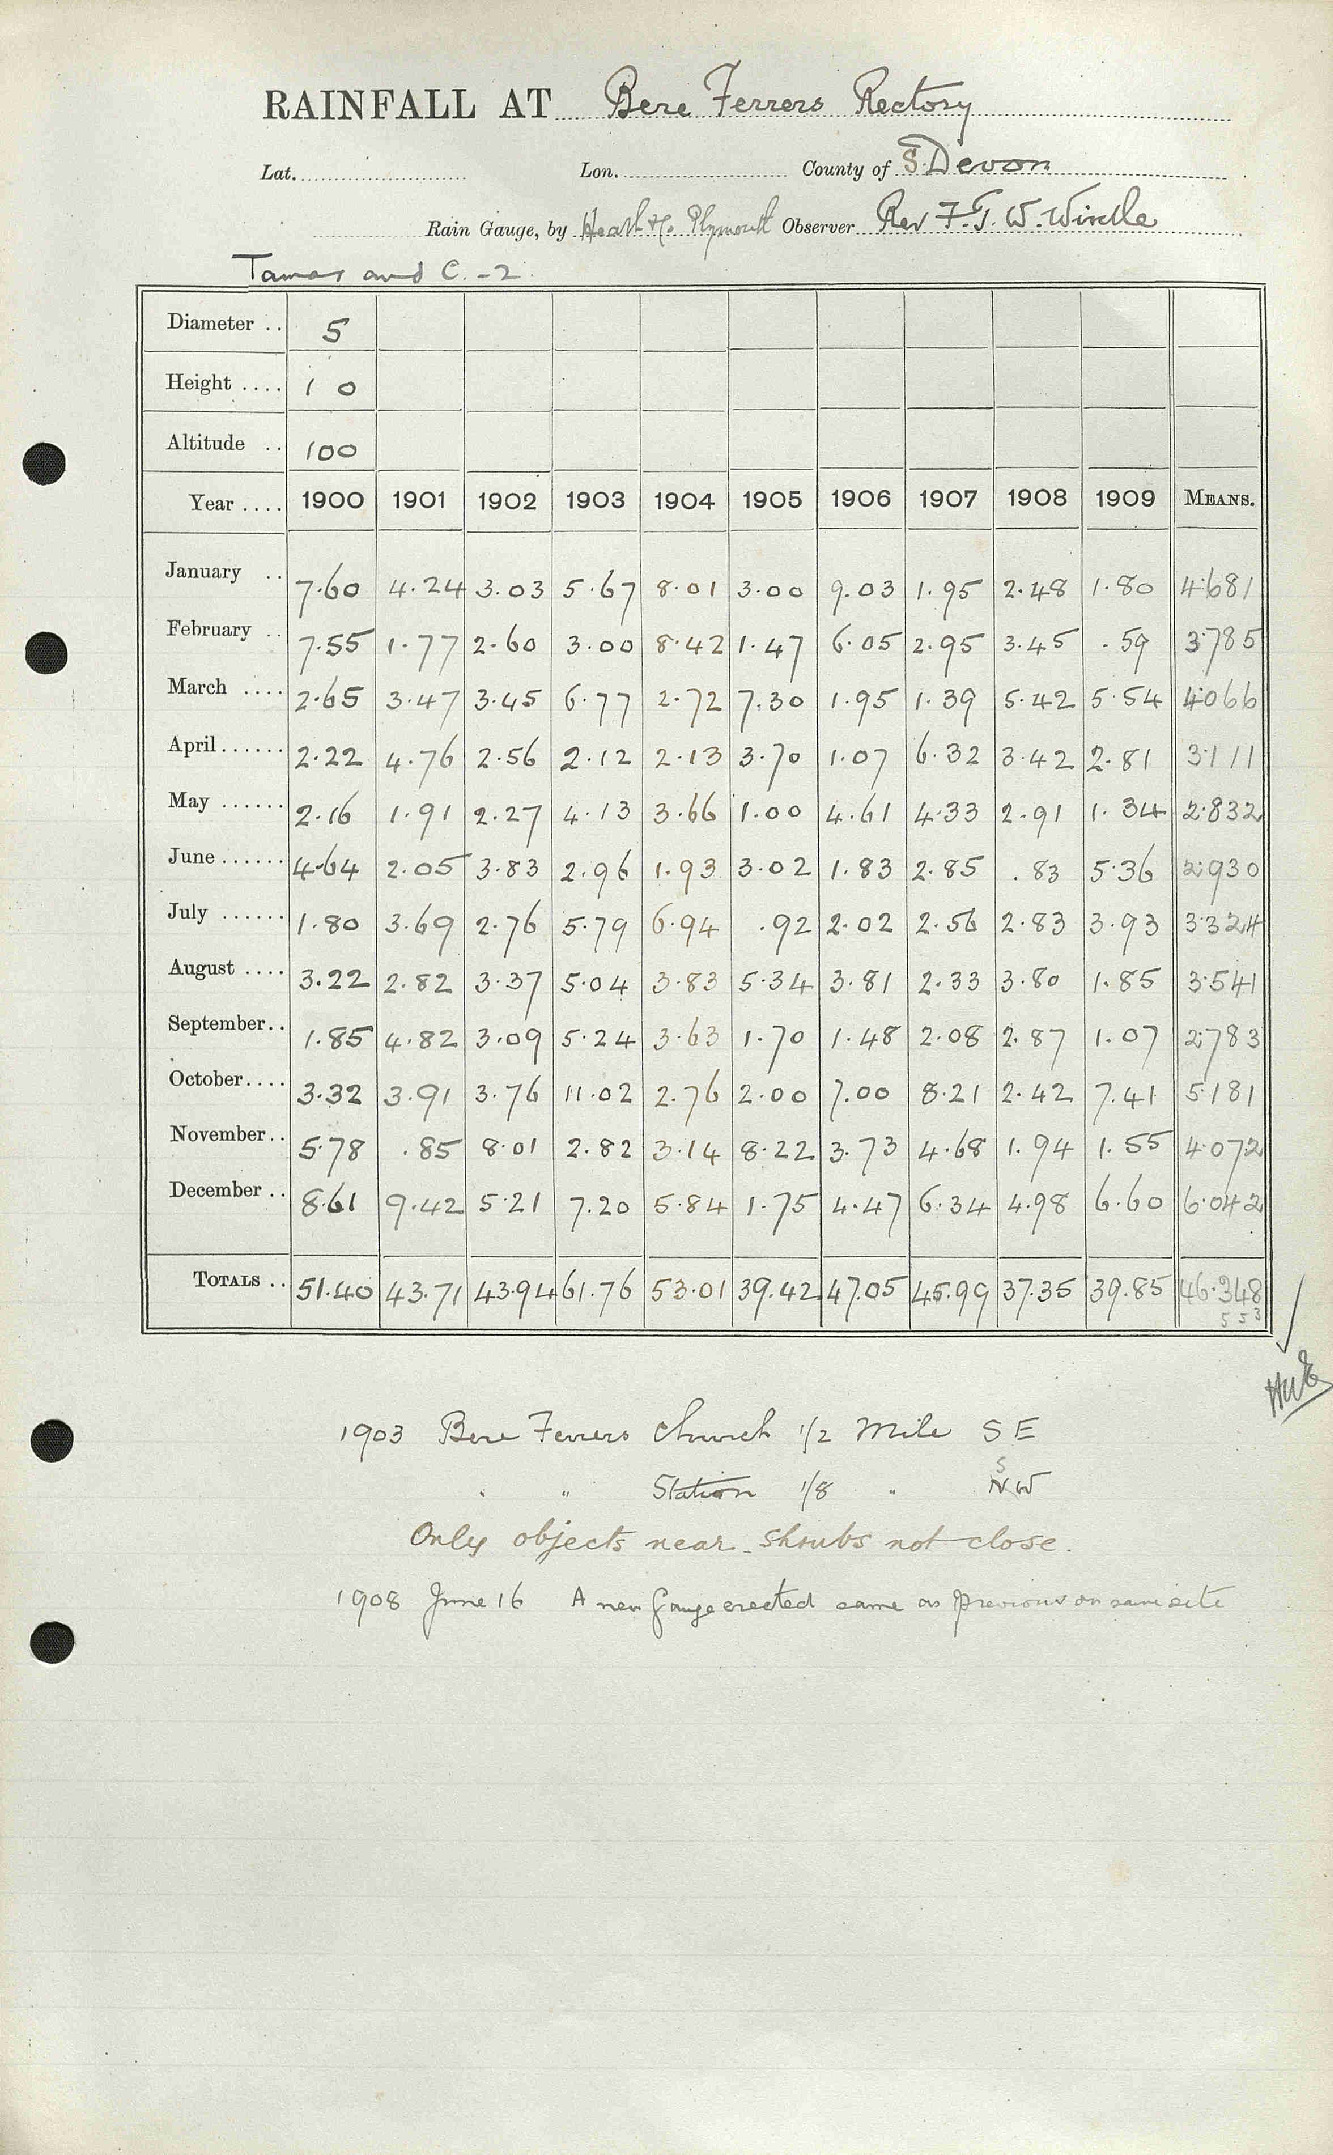 RAINFALL AT Bere Ferrers Rectory
Lat. Lon. County of S. Devon
Rain Gauge, by Heath & Co. Plymouth Observer Rev F. T. W. Windle
Tamar and C. - 2
Diameter .. 5
Height .... 1 0
Altitude .. 100
Year .... 1900 1901 1902 1903 1904 1905 1906 1907 1908 1909 MEANS.
January .. 7.60 4.24 3.03 5.67 8.01 3.00 9.03 1.95 2.48 1.80 4.681
February .. 7.55 1.77 2.60 3.00 8.42 1.47 6.05 2.95 3.45 .59 3.785
March .... 2.65 3.47 3.45 6.77 2.72 7.30 1.95 1.39 5.42 5.54 4.066
April...... 2.22 4.76 2.56 2.12 2.13 3.70 1.07 6.32 3.42 2.81 3.111
May ...... 2.16 1.91 2.27 4.13 3.66 1.00 4.61 4.33 2.91 1.34 2.832
June...... 4.64 2.05 3.83 2.96 1.93 3.02 1.83 2.85 .83 5.36 2.930
July ...... 1.80 3.69 2.76 5.79 6.94 .92 2.02 2.56 2.83 3.93 3.324
August .... 3.22 2.82 3.37 5.04 3.83 5.34 3.81 2.33 3.80 1.85 3.541
September.. 1.85 4.82 3.09 5.24 3.63 1.70 1.48 2.08 2.87 1.07 2.783
October.... 3.32 3.91 3.76 11.02 2.76 2.00 7.00 8.21 2.42 7.41 5.181
November.. 5.78 .85 8.01 2.82 3.14 8.22 3.73 4.68 1.94 1.55 4.072
December .. 8.61 9.42 5.21 7.20 5.84 1.75 4.47 6.34 4.98 6.60 6.042
TOTALS .. 51.40 43.71 43.94 61.76 53.01 39.42 47.05 45.99 37.35 39.85 46.348
5 5 3
1903 Bere Ferrers Church 1/2 Mile S E
" " Station 1/8 " S NW
Only objects near - shrubs not close.
1908 June 16 A new gauge erected same as previous on same site